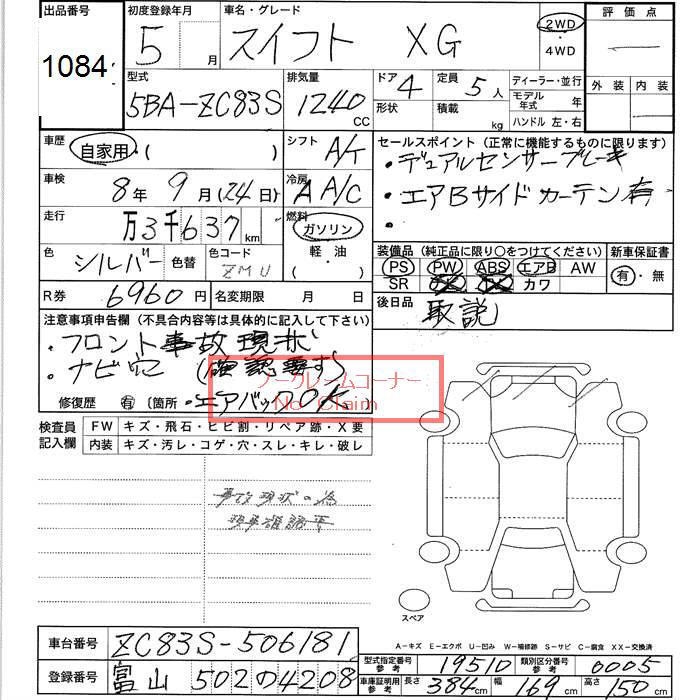 出品番号 初度登録年月 車名・グレード 評価点
1084 5 月 スイフト XG 2WD・4WD
型式 排気量 ドア 4 定員 5人 ディーラー・並行 外装 内装
5BA-ZC83S 1240 CC 形状 積載 kg モデル年式 年
ハンドル 左・右
車歴 自家用・( ) シフト A/T セールスポイント (正常に機能するものに限ります)
・デュアルセンサーブレーキ
車検 8年 9月(24日) 冷房 A A/C ・エアBサイドカーテン有
走行 万3千637km 燃料 ガソリン ・
軽・油 ( )
色 シルバー 色替 色コード ZMU 装備品 (純正品に限り○をつけてください) 新車保証書
PS PW ABS エアB AW 有・無
SR カワ
R券 6960円 名変期限 月 日 後日品 取説
注意事項申告欄 (不具合内容等は具体的に記入して下さい)
・フロント事故現状
・ナビ (確認要す)
ノークレームコーナー
No Claim
修復歴 有 〔箇所 ・エアバックOK
検査員記入欄 FW キズ・飛石・ヒビ割・リペア跡・X要
内装 キズ・汚レ・コゲ・穴・スレ・キレ・破レ
事故現状の為
現車確認下
スペア
A-キズ E-エクボ U-凹み W-補修跡 S-サビ C-腐食 XX-交換済
車台番号 ZC83S-506181 型式指定番号参考 19510 類別区分番号参考 0005
登録番号 富山 502の4208 車庫証明用参考 長さ 384cm 幅 169cm 高さ 150cm